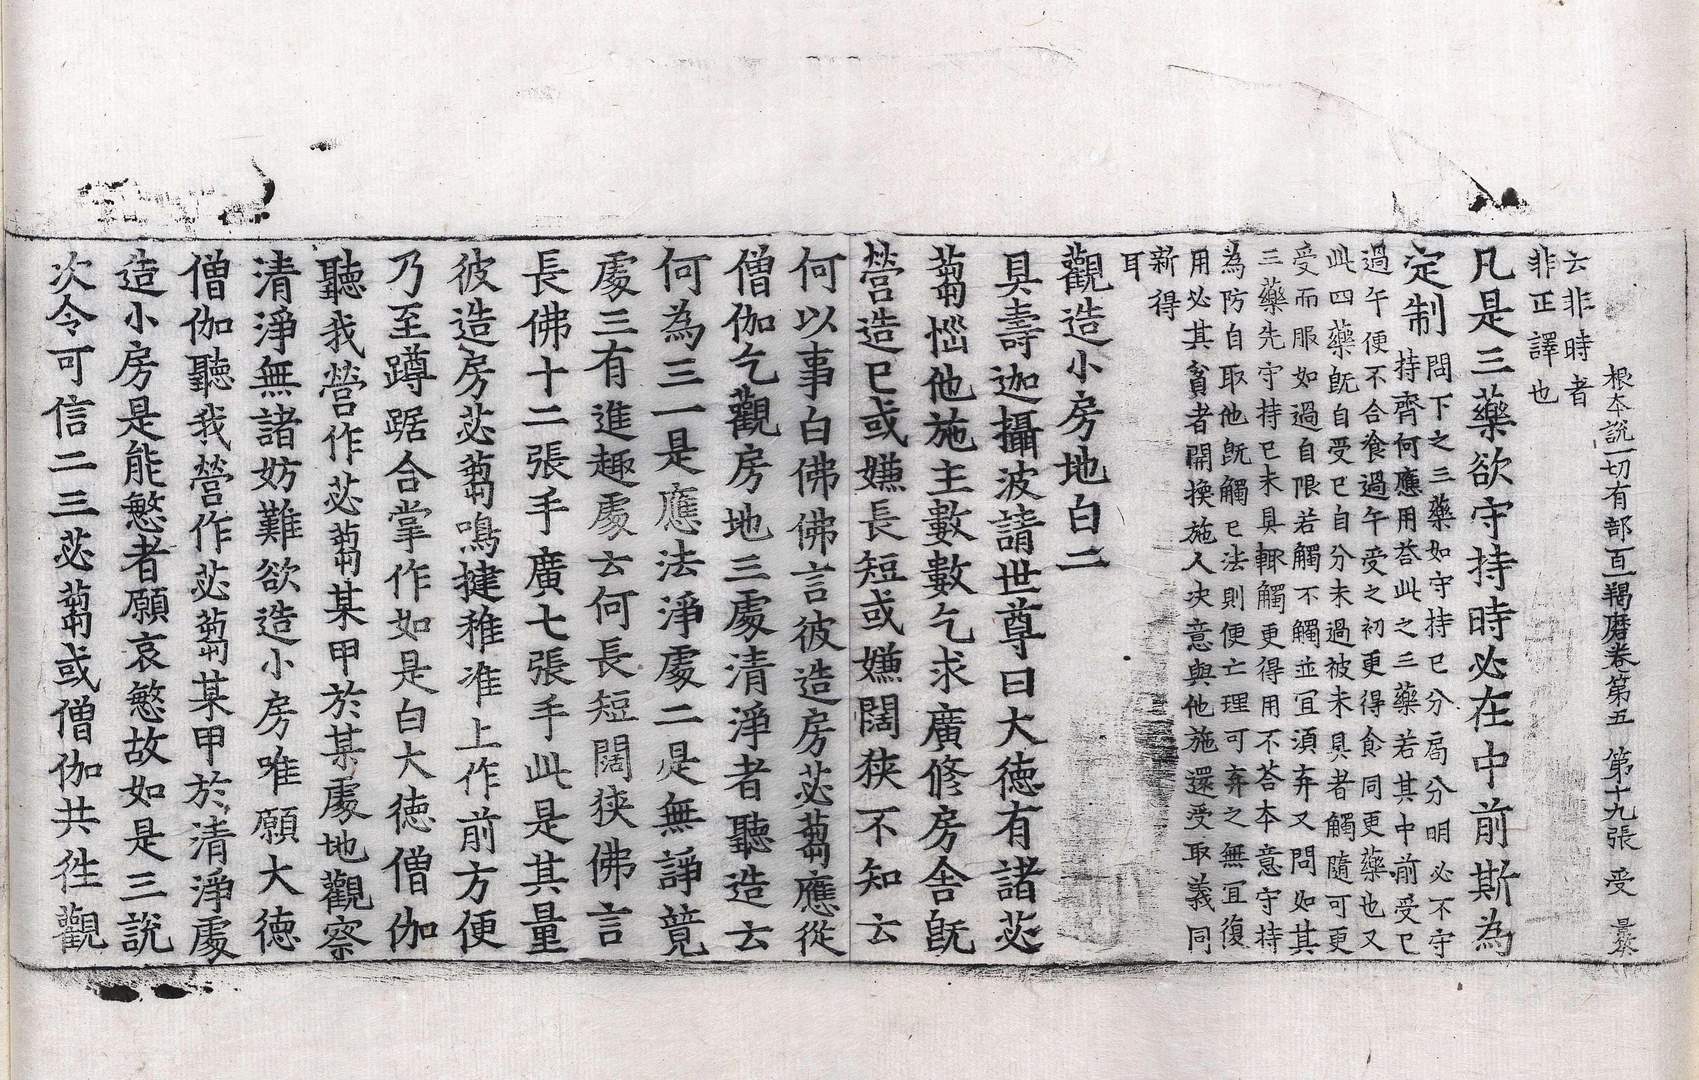 根本說一切有部百一羯磨卷第五 第十九張 受
云非時者
非正譯也
凡是三藥欲守持時必在中前斯為
定制 問下之三藥如守持已分局分明必不守
持齊何應用荅此之三藥若其中前受已
過午便不合飡過午受之初更得食同更藥也又
此四藥旣自受已自分未過被未具者觸隨可更
受而服如過自限若觸不觸並宜須弃又問如其
三藥先守持已未具輙觸更得用不荅本意守持
為防自取他旣觸已法則便亡理可弃之無宜復
用必其貧者開換施人決意與他施還受取義同
新得
耳
觀造小房地白二
具壽迦攝波請世尊曰大德有諸苾
蒭惱他施主數數乞求廣修房舍旣
營造已或嫌長短或嫌闊狹不知云
何以事白佛佛言彼造房苾蒭應從
僧伽乞觀房地三處清淨者聽造云
何為三一是應法淨處二是無諍競
處三有進趣處云何長短闊狹佛言
長佛十二張手廣七張手此是其量
彼造房苾蒭鳴揵稚准上作前方便
乃至蹲踞合掌作如是白大德僧伽
聽我營作苾蒭某甲於某處地觀察
清淨無諸妨難欲造小房唯願大德
僧伽聽我營作苾蒭某甲於清淨處
造小房是能慜者願哀慜故如是三說
次令可信二三苾蒭或僧伽共徃觀